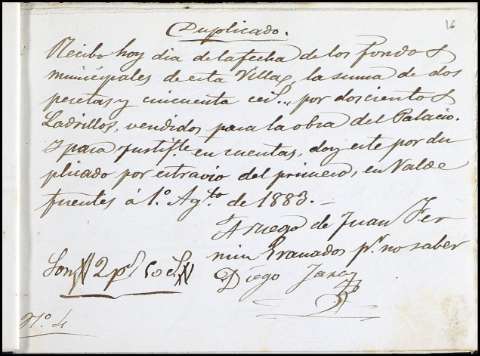 16
Duplicado.
Recibo hoy dia de la fecha de los fondos
municipales de esta Villa, la suma de dos
pesetas y cincuenta cen.s por doscientos
Ladrillos, vendidos para la obra del Palacio.
Y para justif.te en cuentas, doy este por du
plicado por extravio del primero, en Valde
fuentes á 1º. Ag.to de 1883.—
A ruego de Juan Fer
min Granados p.r no saber
Son 2 p.s 50 c.s
Diego
Nº. 4